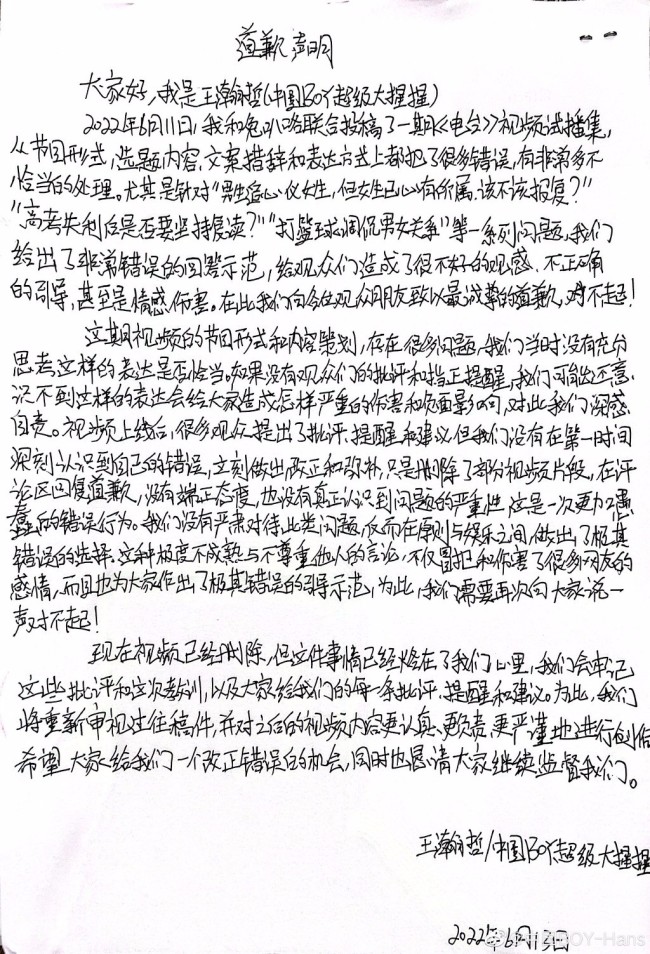 道歉声明
大家好,我是王瀚哲(中国BOY超级大猩猩)
2022年6月11日,我和兔叭咯联合投稿了一期《电台》视频试播集,
从节目形式,选题内容,文案措辞和表达方式上都犯了很多错误,有非常多不
恰当的处理。尤其是针对“男生追心仪女生,但女生已心有所属,该不该报复?”
“高考失利后是否要坚持复读?”“打篮球调侃男女关系”等一系列问题,我们
给出了非常错误的回答示范,给观众们造成了很不好的观感、不正确
的引导,甚至是情感伤害。在此我们向各位观众朋友致以最诚挚的道歉,对不起!
这期视频的节目形式和内容策划,存在很多问题,我们当时没有充分
思考,这样的表达是否恰当。如果没有观众们的批评和指正提醒,我们可能还意
识不到这样的表达会给大家造成怎样严重的伤害和负面影响,对此我们深感
自责。视频上线后,很多观众提出了批评、提醒和建议,但我们没有在第一时间
深刻认识到自己的错误,立刻做出改正和弥补,只是删除了部分视频片段,在评
论区回复道歉,没有端正态度,也没有真正认识到问题的严重性,这是一次更加愚
蠢的错误行为。我们没有严肃对待此类问题,反而在原则与娱乐之间,做出了极其
错误的选择,这种极度不成熟与不尊重他人的言论,不仅冒犯和伤害了很多网友的
感情,而且也为大家作出了极其错误的引导示范,为此,我们需要再次向大家说一
声对不起!
现在视频已经删除,但这件事情已经烙在了我们心里,我们会牢记
这些批评和这次教训,以及大家给我们的每一条批评、提醒和建议。为此,我们
将重新审视过往稿件,并对之后的视频内容更认真、更负责、更严谨地进行创作
希望大家给我们一个改正错误的机会,同时也恳请大家继续监督我们。
王瀚哲/中国BOY超级大猩猩
2022年6月13日